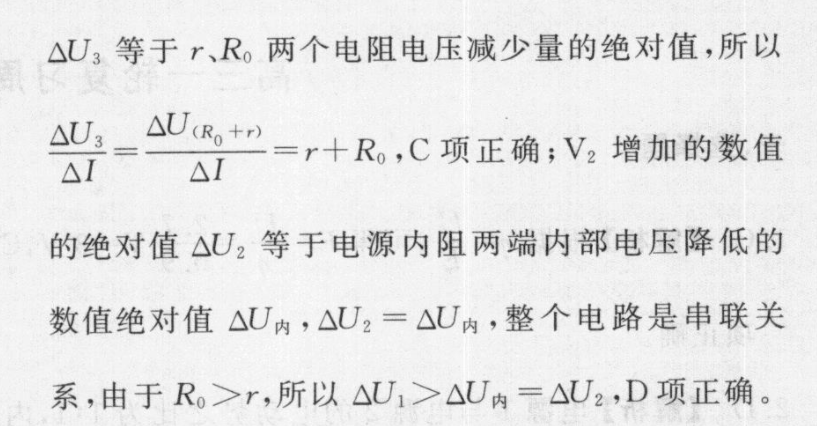 ΔU₃ 等于 r、R₀ 两个电阻电压减少量的绝对值,所以
ΔU₃/ΔI=ΔU₍R₀₊r₎/ΔI=r+R₀,C 项正确;V₂ 增加的数值
的绝对值 ΔU₂ 等于电源内阻两端内部电压降低的
数值绝对值 ΔU内,ΔU₂=ΔU内,整个电路是串联关
系,由于 R₀>r,所以 ΔU₁>ΔU内=ΔU₂,D项正确。